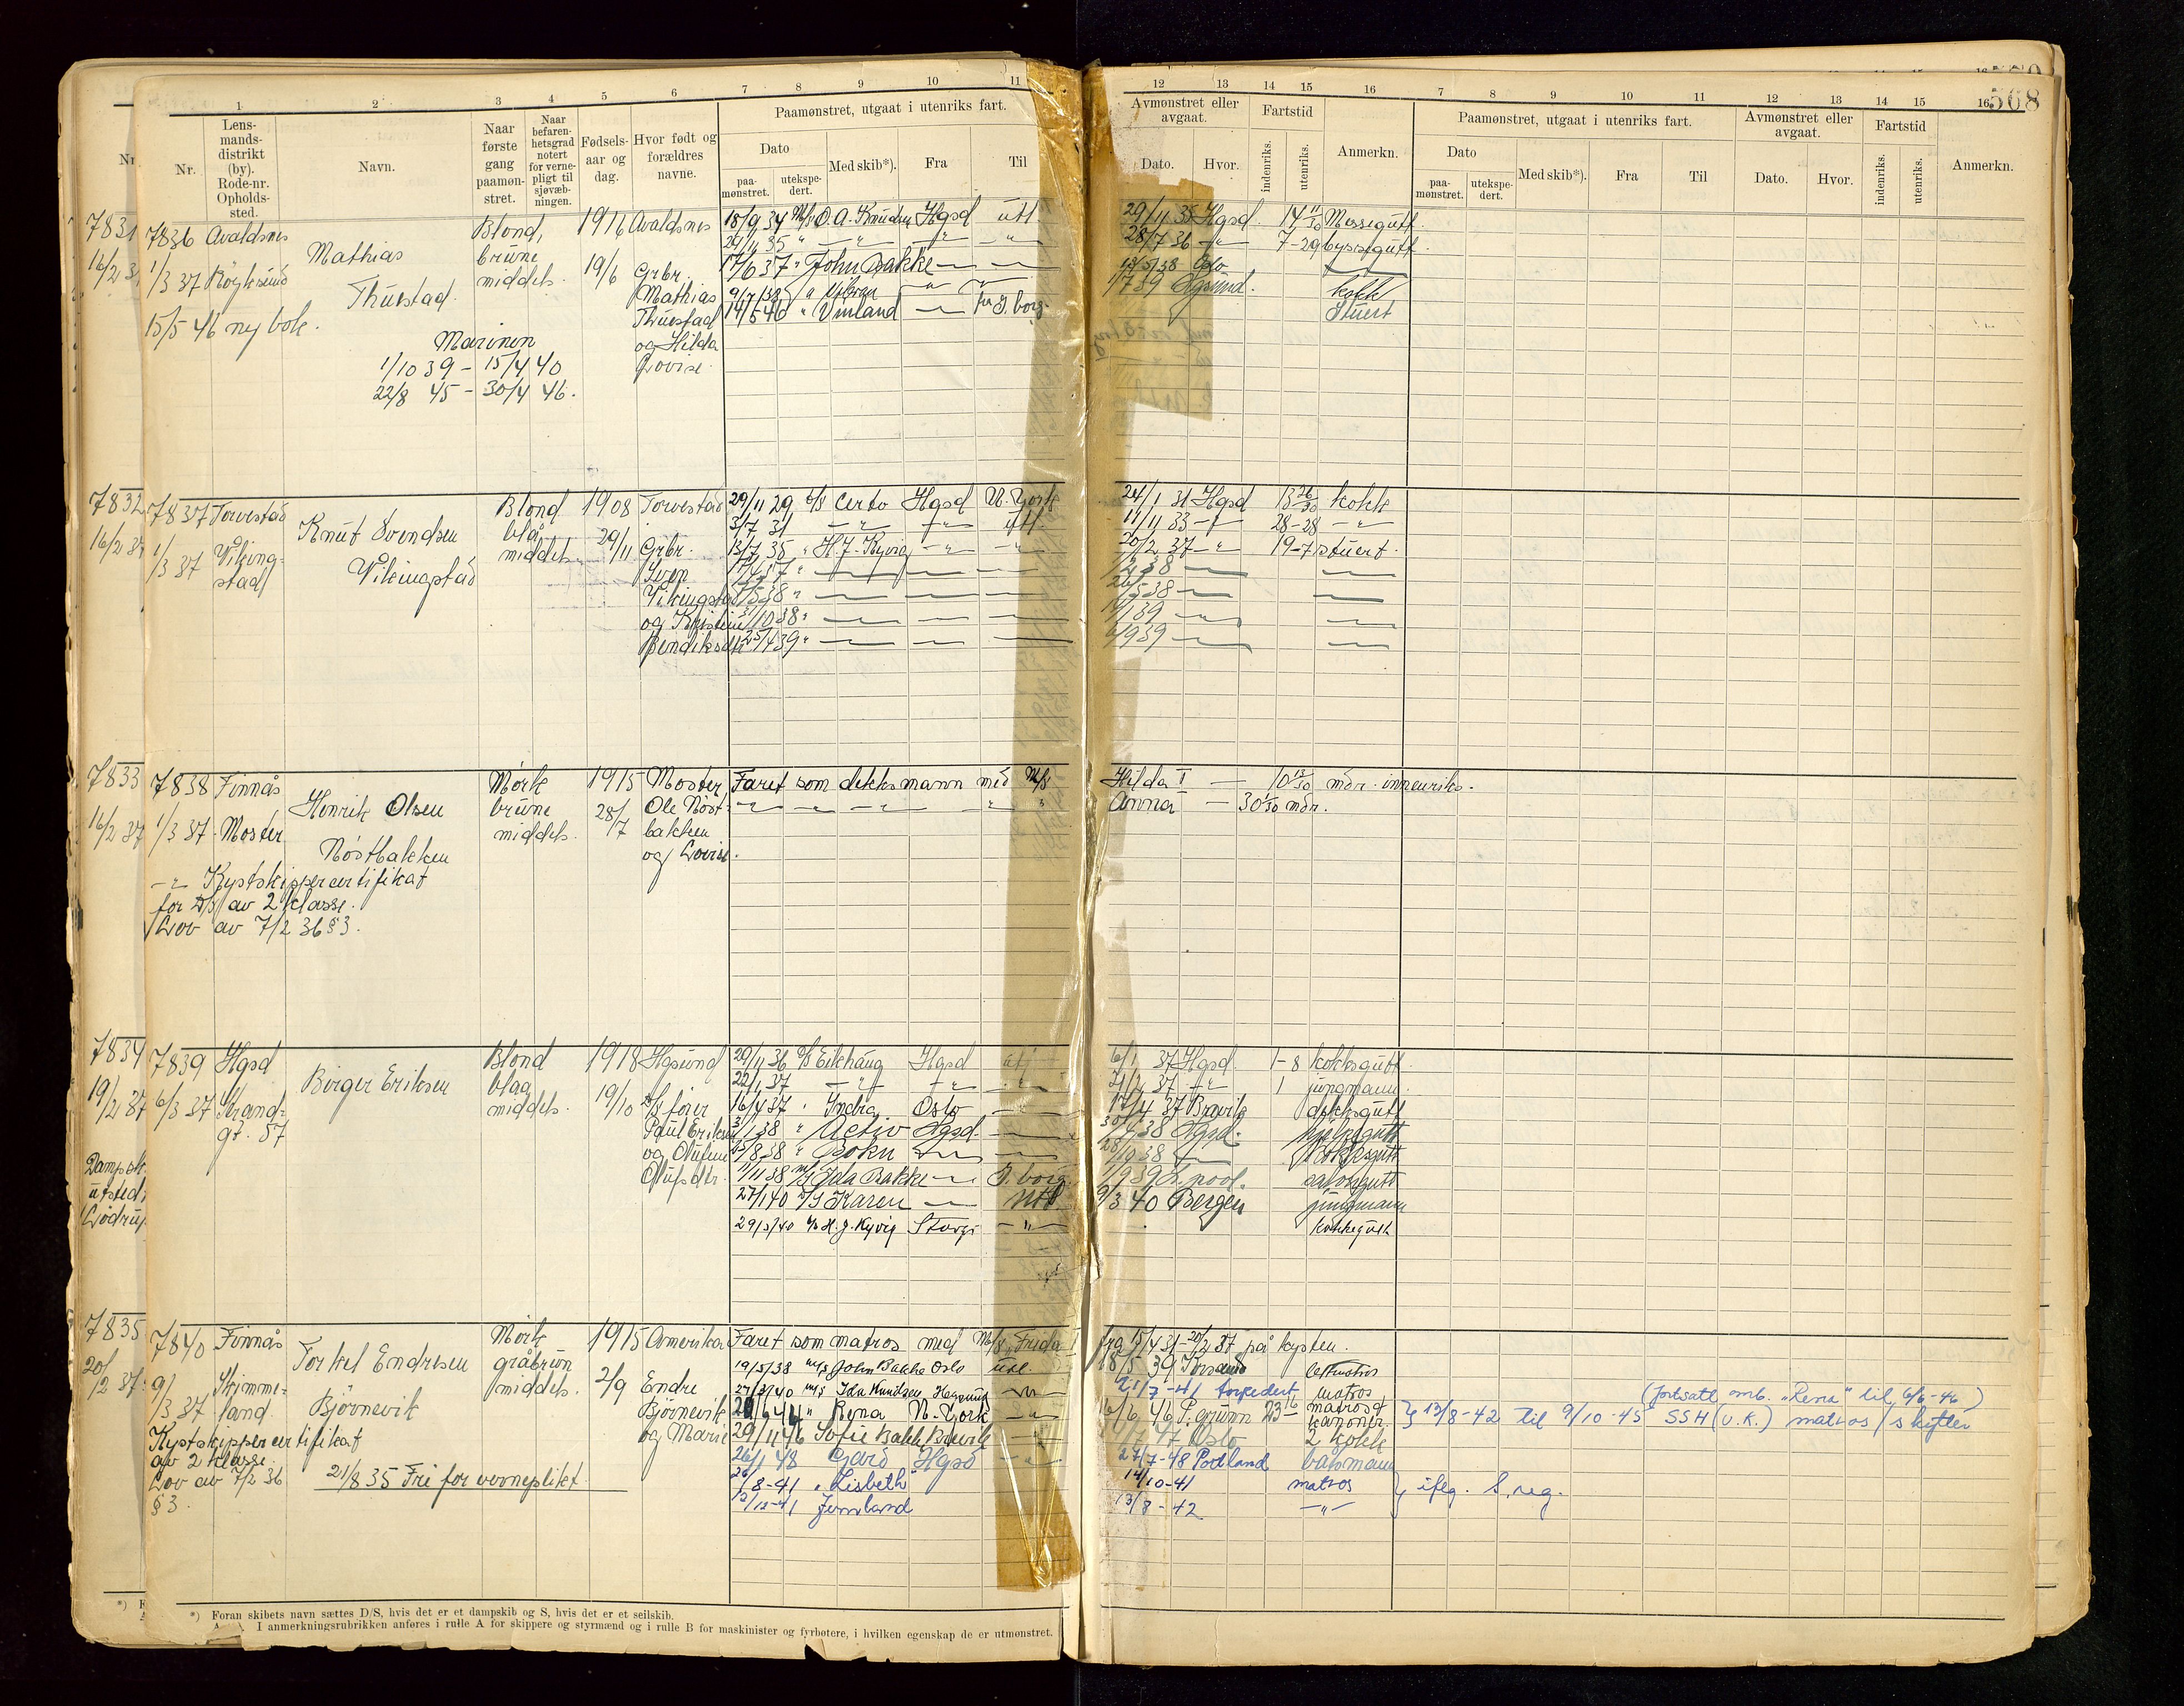 568
1 2 3 4 5 6 7 8 9 10 11
12 13 14 15 16 7 8 9 10 11 12 13 14 15 16
Nr.
Lens-
mands-
distrikt
(by).
Rode-nr.
Opholds-
sted.
Navn.
Naar
første
gang
paamøn-
stret.
Naar
befaren-
hetsgrad
notert
for verne-
pligt til
sjøvæb-
ningen.
Fødsels-
aar og
dag.
Hvor født og
forældres
navne.
Paamønstret, utgaat i utenriks fart.
Dato
paa-
mønstret.
utekspe-
dert.
Med skib*).
Fra
Til
Avmønstret eller
avgaat.
Dato.
Hvor.
Fartstid
indenriks.
utenriks.
Anmerkn.
Paamønstret, utgaat i utenriks fart.
Dato
paa-
mønstret.
utekspe-
dert.
Med skib*).
Fra
Til
Avmønstret eller
avgaat.
Dato.
Hvor.
Fartstid
indenriks.
utenriks.
Anmerkn.
7831
16/2 3
7836 Avaldsnes
1/3 37
15/5 46 ny bok.
Mathias
Thuestad.
Marinen
1/10 39 - 15/4 40
22/8 45 - 30/4 46.
Blond,
brune
middels.
1916
19/6
Avaldsnes
Grbr.
Mathias
Thuestad
og Hilda
Lovise.
18/9 34 M/s O. A. Knudsen Hgsd utl.
29/11 35 " —"— —"— —"—
17/6 37 " John Bakke — —
14/5 46 " Vinland — fr S. borg.
29/11 35 Hgsd. 14 11/30 Messegutt.
28/7 36 —"— 7-29 byssegutt.
Oslo
1/7 39
kokk
Stuert
7832
16/2 37
7837 Torvestad
1/3 37 Viking-
stad
Knut Svendsen
Vikingstad
Blond
blå
middels.
1908
29/11
Torvestad
Grbr.
Sven
Vikingstad
og Kristine
Bendiksdtr
29/11 29 d/s Certo Hgsd N. York
3/7 31 —"— —"— utl.
13/7 35 " H. J. Kyvig —"— —"—
24/1 31 Hgsd 13 26/30 kokk
11/11 33 —"— 28-28 —"—
20/2 37 —"— 19-7 stuert.
7833
16/2 37
7838 Finnås
1/3 37 - Moster
Henrik Olsen
Nöstbakken
—"— Kystskippercertifikat
for D/S av 2 klasse.
Lov av 7/2 36 § 3.
Mörk
brune
middels.
1915
28/7
Moster
Ole Nöst-
bakken
og Lovise.
Faret som dekksmann med M/s
—"— —"— —"— —"— " "
Hilda I — 10 13/30 mdr. innenriks.
Anna — 30 1/30 mdr.
7834
19/2 37
Dampsk.
utsted.
7839 Hgsd
6/3 37 Strand-
gt. 57
Birger Eriksen
Blond
blåg
middels.
1918
19/10
Hgsund
d/s fører
Paul Eriksen
og
Olufsdtr.
29/11 36 d/s Eikhaug Hgsd utl
22/1 37 —"— —"— —"—
16/4 37 " Indra Oslo —
3/1 38 " Activ Hgsd. —
5/8 38 " Bokn — —
11/11 38 m/s Ida Bakke — S. borg
27/1 40 D/S Karen — utl.
29/3/40 m/s H. J. Kyvig —"—
6/1 37 Hgsd. 1-8 kokksgutt.
21/2 37 —"— 1 jungmann.
17/4 37 Brevik dekksgutt
38 Hgsd.
38 — kokksgutt
39 L. pool. salongutt
9/3 40 Bergen jungmann
kokkegutt
7835
20/2 37
7840 Finnås
9/3 37 Skimme-
land.
Torkel Endresen
Björnevik
Kystskippercertifikat
av 2 klasse.
Lov av 7/2 36
§ 3.
21/8 35 Fri for verneplikt
Mörk
gråbrun
middels.
1915
2/9
Amerika
Endre
Björnevik
og Marie
Faret som matros med M/s Frida I
fra 15/4 31 - 20/2 37 på kysten.
19/5/38 m/s John Bakke Oslo utl.
27/3/40 m/s Ida Knudsen Hagesund —"—
" Rena N. York —"—
29/11 46 Sofie Bakke Brevik —
26/1 48 Gard Hgsd —"—
26/8-41 "Lisbeth"
2/12-41 Jernland
18/5 39 letmatros
21/7-41 torpedert matros
6/6 46 P. grunn 23-16 matros & kanoner.
} 13/8-42 til 9/10-45 SSH (U.K.) matros / skytter
(fortsatt omb. "Rena" til 6/6-46)
1/7 47 Oslo 2 kokk
27/7-48 Portland båtsmann
14/10-41 matros
13/8-42 —"—
} iflg. S. reg.
*) Foran skibets navn sættes D/S, hvis det er et dampskib og S, hvis det er et seilskib.
I anmerkningsrubrikken anføres i rulle A for skippere og styrmænd og i rulle B for maskinister og fyrbøtere, i hvilken egenskap de er utmønstret.